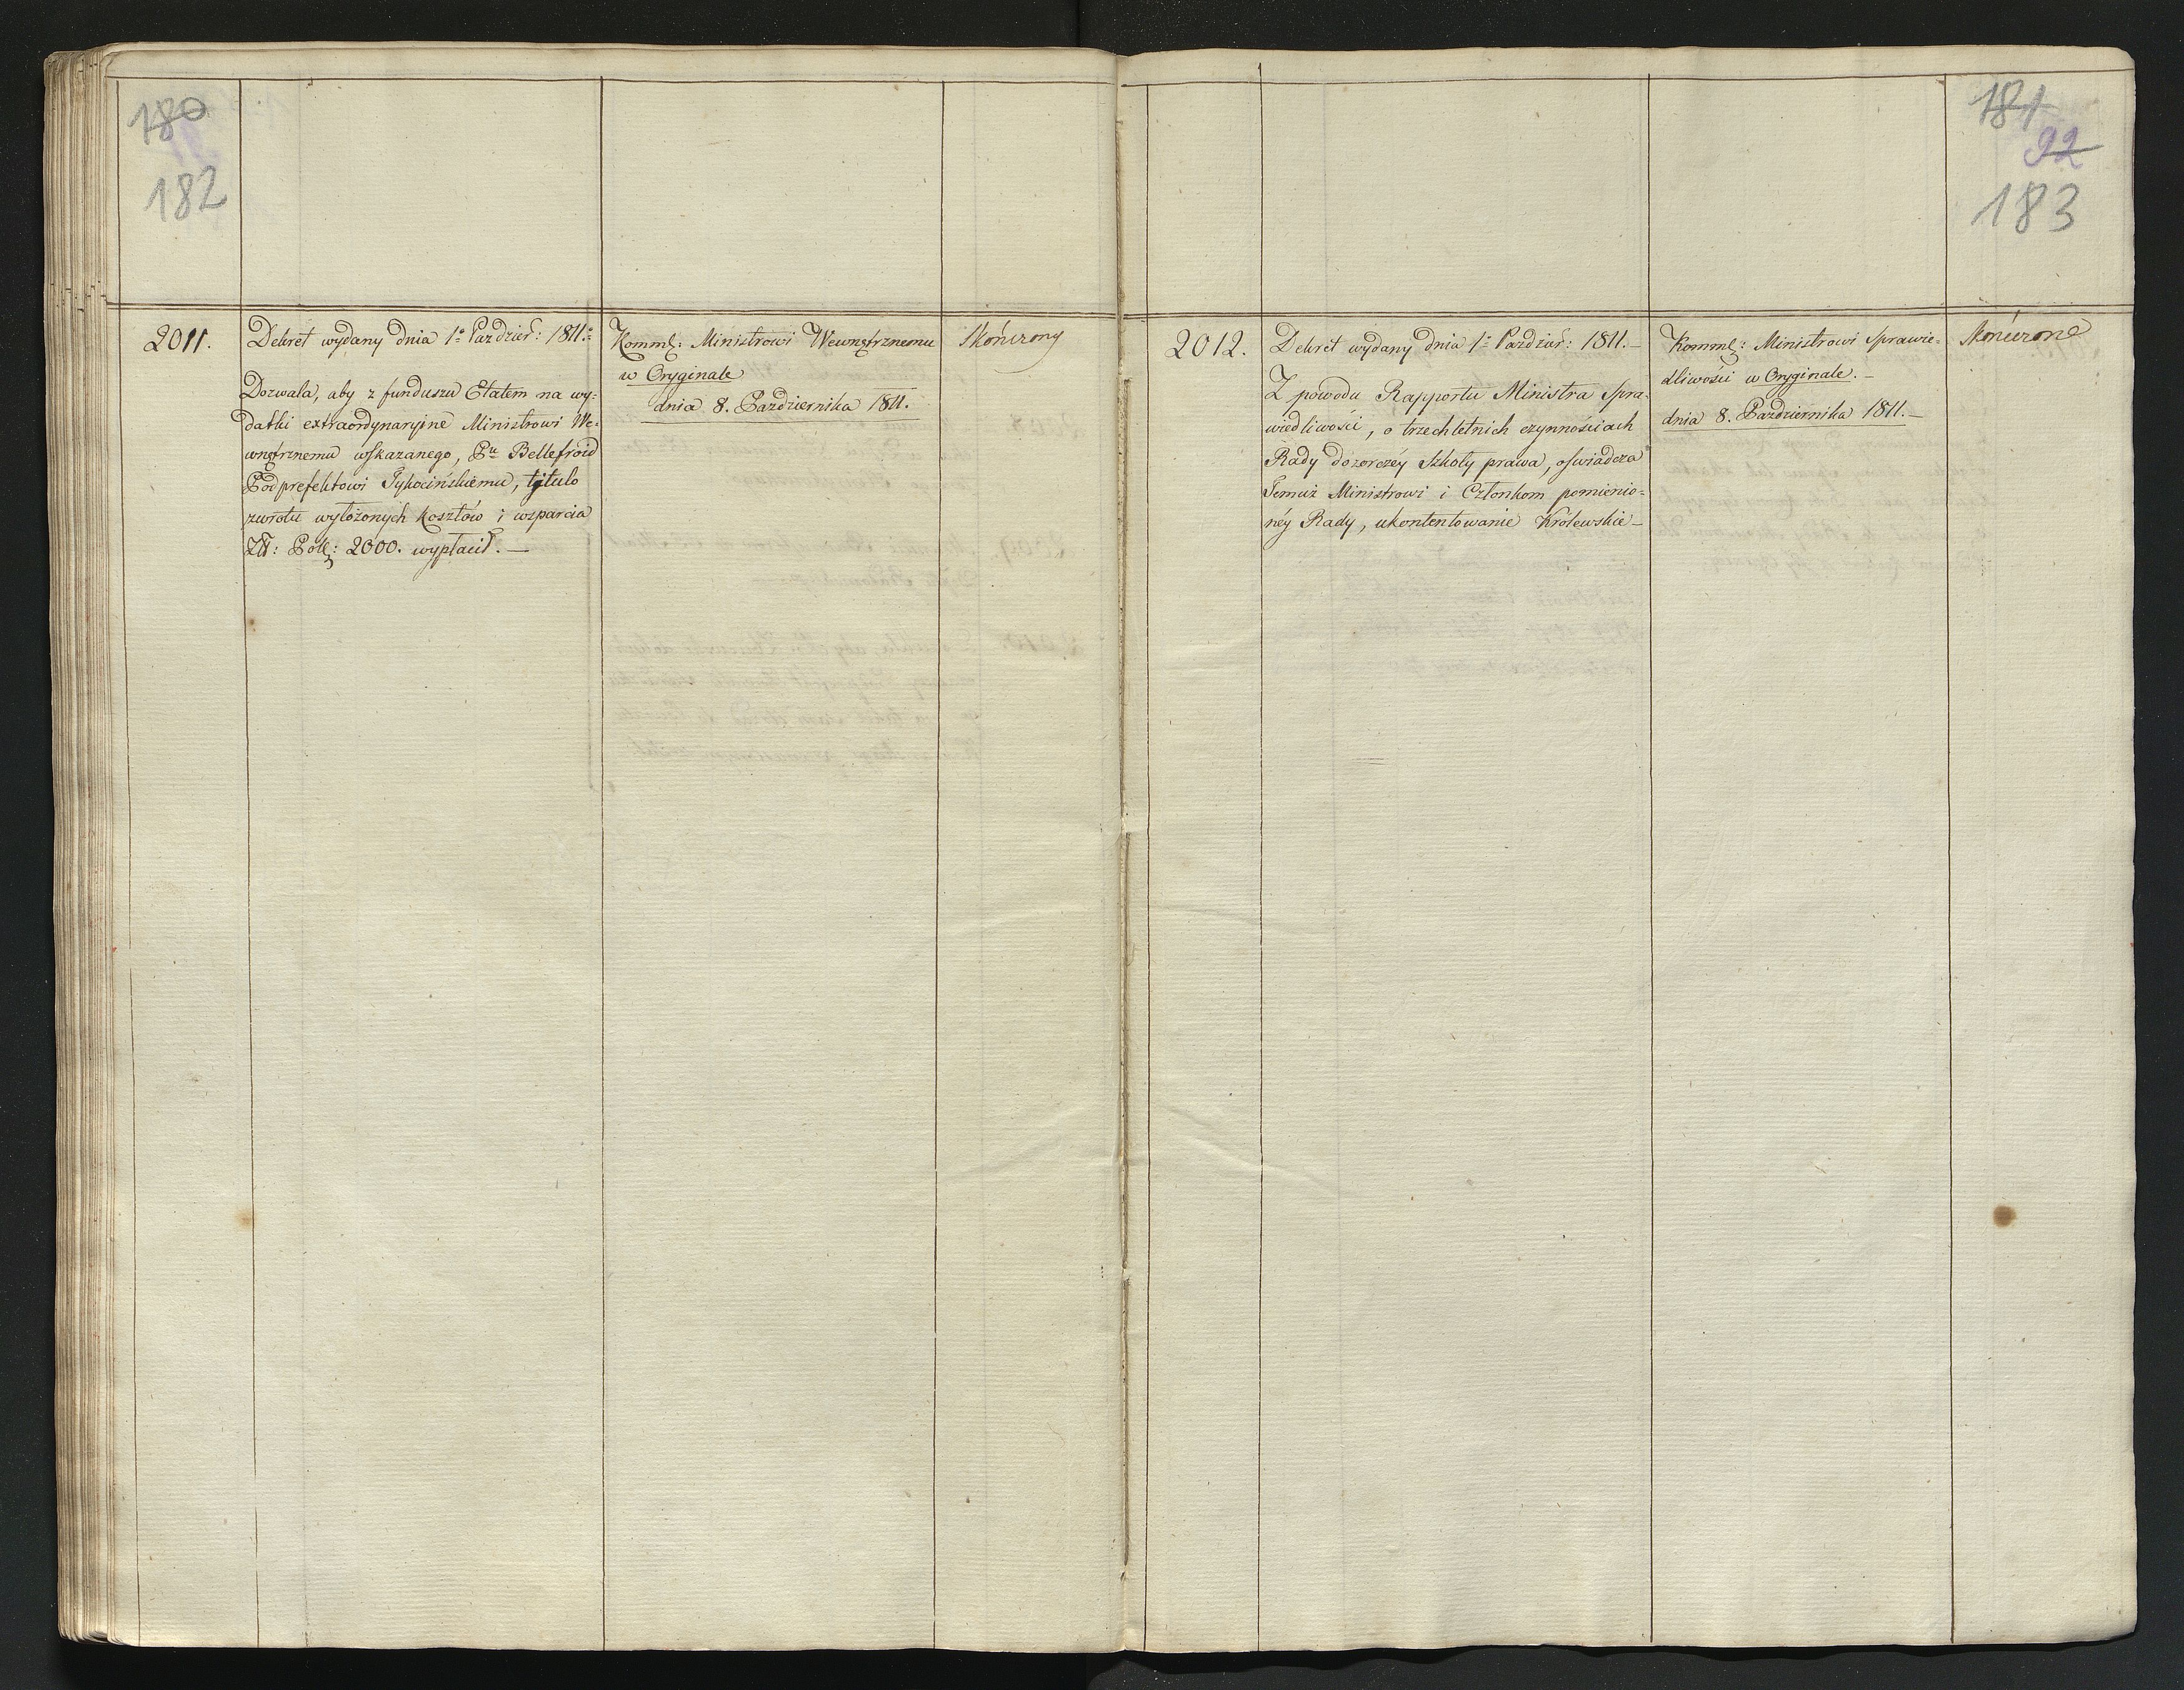 180
182
2011.
Dekret wydany dnia 1º Paździer: 1811.
Dozwala, aby z funduszu Etatem na wy-
datki extraordynaryjne Ministrowi We-
wnętrznemu wskazanego, Pu Bellefroid
Podprefektowi Tykocińskiemu, tytulo
zwrotu wyłożonych kosztów i wsparcia
Zł: Polk: 2000. wypłacił. —
Komml: Ministrowi Wewnętrznemu
w Oryginale
dnia 8. Października 1811.
Skończony
181
92
183
2012.
Dekret wydany dnia 1º Paździer: 1811. —
Z powodu Rapportu Ministra Spra-
wiedliwości, o trzechletnich czynnościach
Rady dozorczéy Szkoły prawa, oświadcza
Temuż Ministrowi i Członkom pomienio-
néy Rady, ukontentowanie Królewskie —
Komml: Ministrowi Sprawie-
dliwości w Oryginale. —
dnia 8. Października 1811. —
Skończone